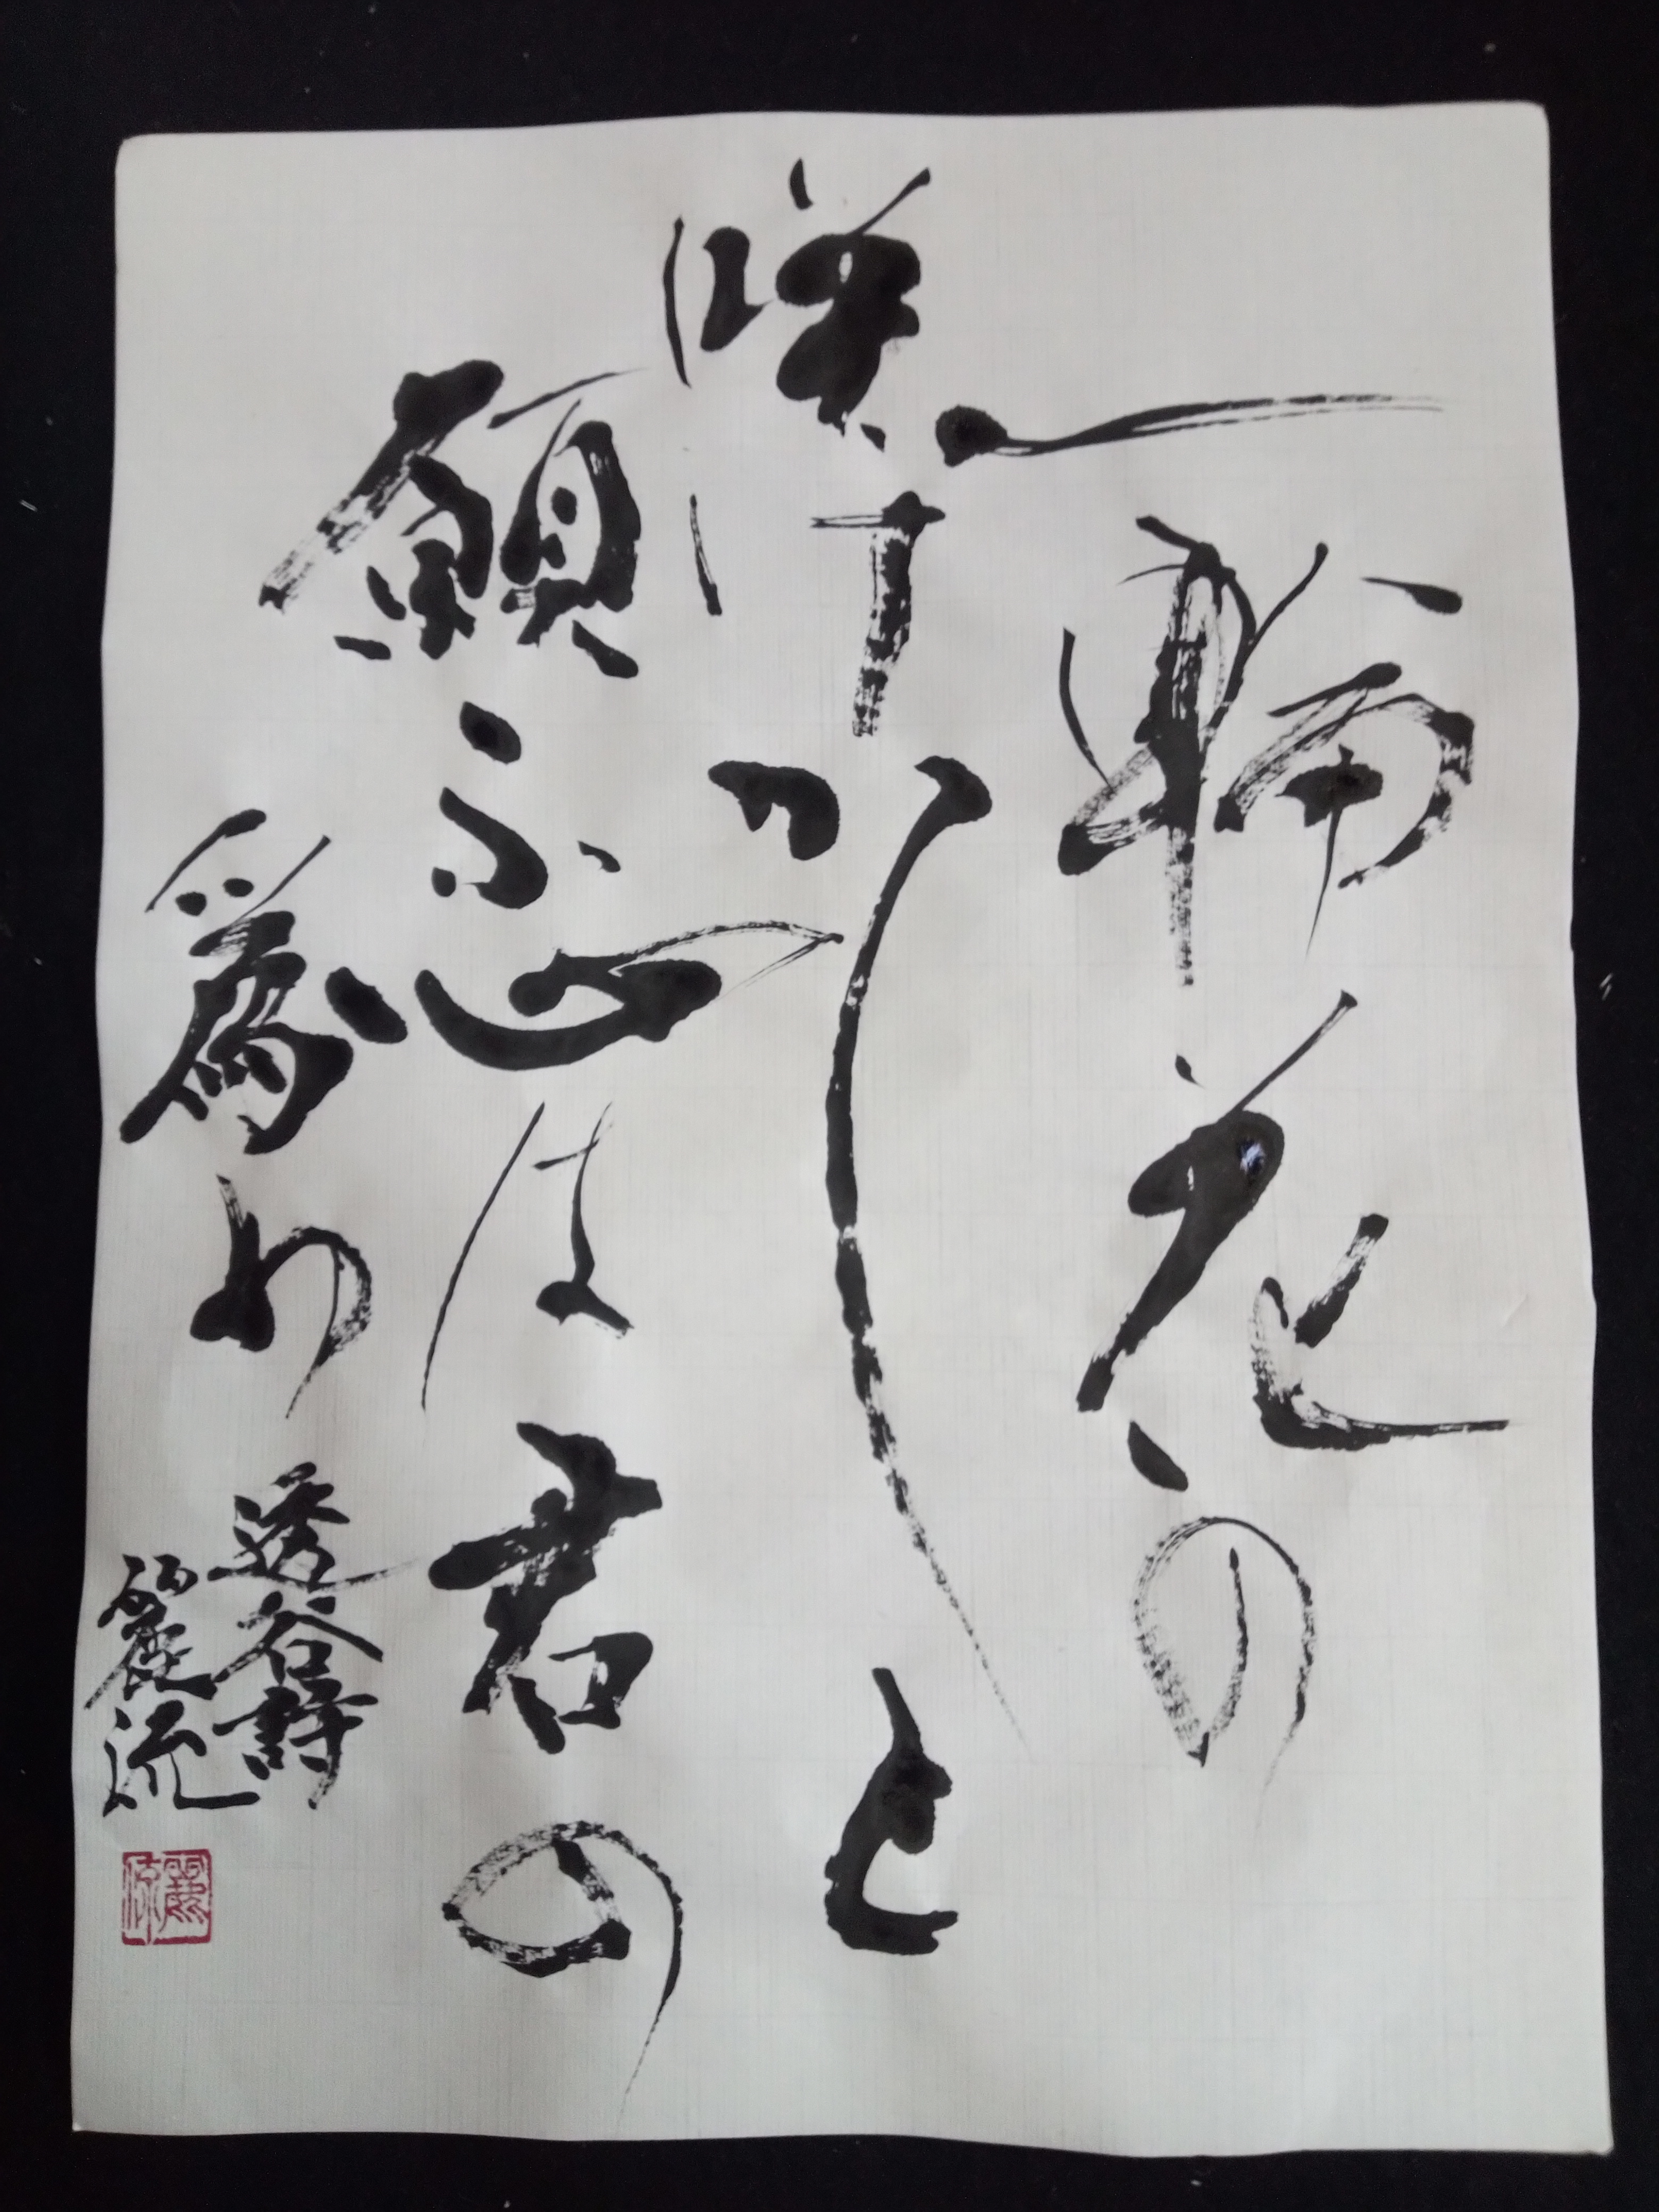 一輪花の
咲けかしと
願ふ心は君の
爲め
透谷詩
麗流
麗流